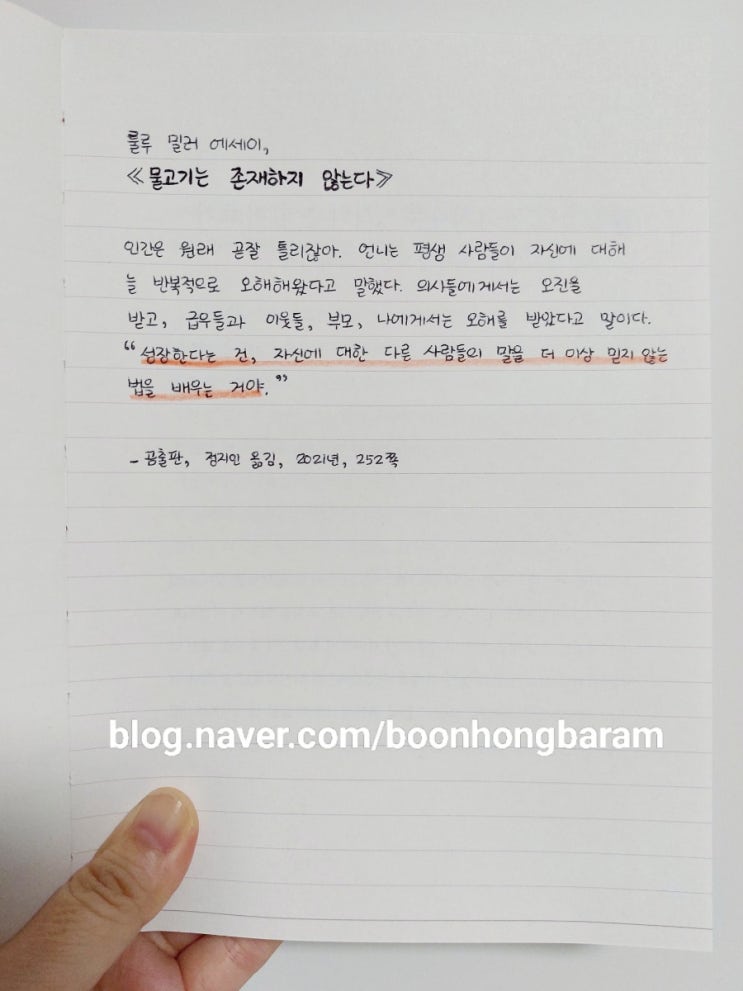 룰루 밀러 에세이,
≪물고기는 존재하지 않는다≫
인간은 원래 곧잘 틀리잖아. 언니는 평생 사람들이 자신에 대해
늘 반복적으로 오해해왔다고 말했다. 의사들에게서는 오진을
받고, 급우들과 이웃들, 부모, 나에게서는 오해를 받았다고 말이다.
“성장한다는 건, 자신에 대한 다른 사람들의 말을 더 이상 믿지 않는
법을 배우는 거야.”
- 곰출판, 정지인 옮김, 2021년, 252쪽
blog.naver.com/boonhongbaram